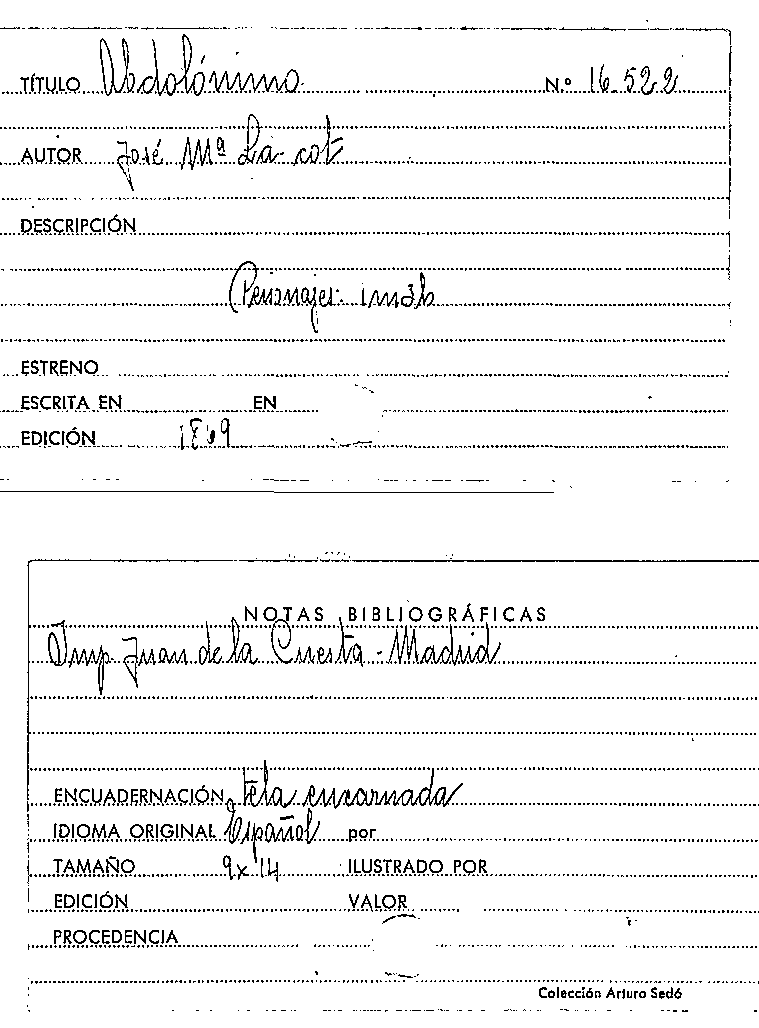 TÍTULO Abdolónimo N.º 16.522
AUTOR José Mª La-cot
DESCRIPCIÓN
Personajes
ESTRENO
ESCRITA EN EN
EDICIÓN 1869
NOTAS BIBLIOGRÁFICAS
Imp Juan de la Cuesta - Madrid
ENCUADERNACIÓN tela encarnada
IDIOMA ORIGINAL Español por
TAMAÑO 9x14 ILUSTRADO POR
EDICIÓN VALOR
PROCEDENCIA
Colección Arturo Sedó